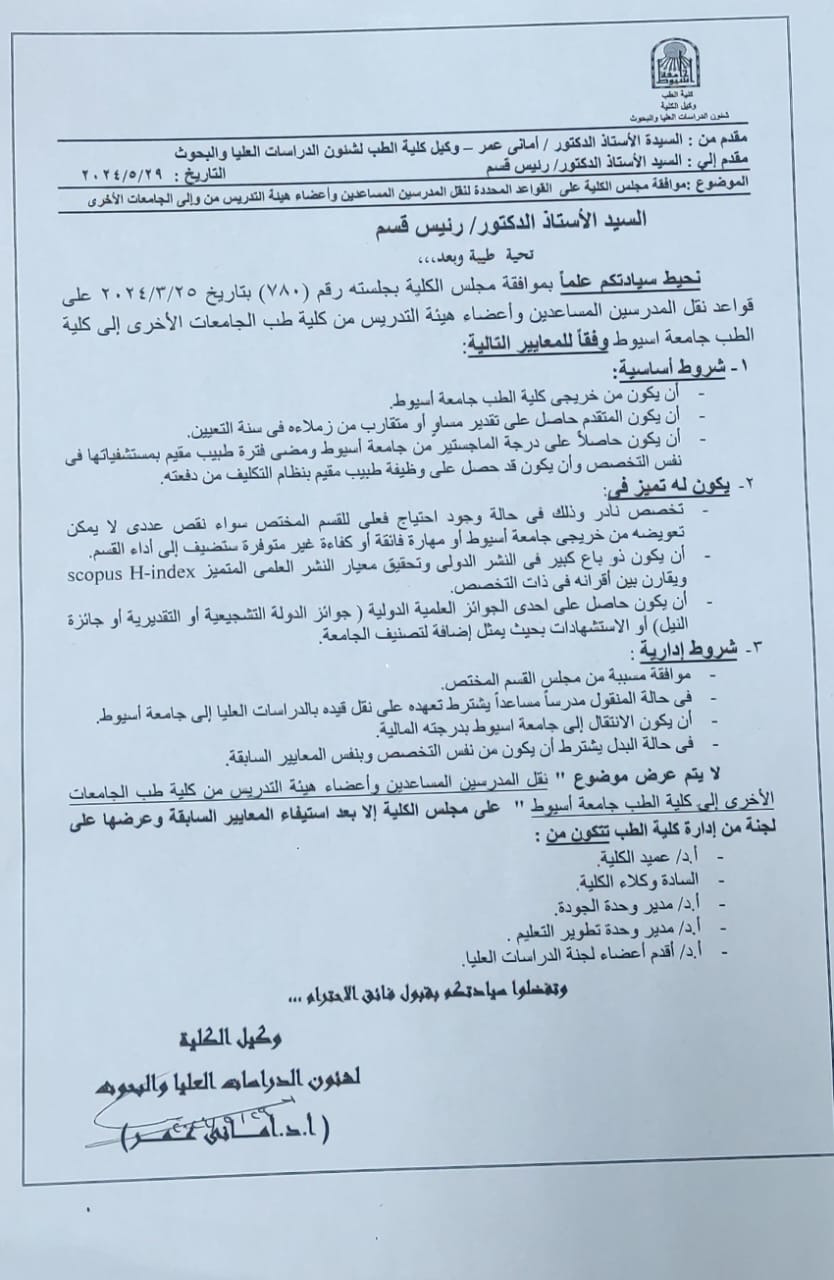 جامعة أسيوط
كلية الطب
وكيل الكلية
شئون الدراسات العليا والبحوث
مقدم من : السيدة الأستاذ الدكتور / أمانى عمر – وكيل كلية الطب لشئون الدراسات العليا والبحوث
مقدم إلي : السيد الأستاذ الدكتور/ رئيس قسم التاريخ : ٢٠٢٤/٥/٢٩
الموضوع :موافقة مجلس الكلية على القواعد المحددة لنقل المدرسين المساعدين وأعضاء هيئة التدريس من وإلى الجامعات الأخرى
السيد الأستاذ الدكتور/ رئيس قسم
تحية طيبة وبعد،،،
نحيط سيادتكم علماً بموافقة مجلس الكلية بجلسته رقم (٧٨٠) بتاريخ ٢٠٢٤/٣/٢٥ على
قواعد نقل المدرسين المساعدين وأعضاء هيئة التدريس من كلية طب الجامعات الأخرى إلى كلية
الطب جامعة اسيوط وفقاً للمعايير التالية:
١- شروط أساسية:
- أن يكون من خريجى كلية الطب جامعة أسيوط.
- أن يكون المتقدم حاصل على تقدير مساوٍ أو متقارب من زملاءه فى سنة التعيين.
- أن يكون حاصلاً على درجة الماجستير من جامعة أسيوط ومضى فترة طبيب مقيم بمستشفياتها فى
نفس التخصص وأن يكون قد حصل على وظيفة طبيب مقيم بنظام التكليف من دفعته.
٢- يكون له تميز فى:
- تخصص نادر وذلك فى حالة وجود احتياج فعلي للقسم المختص سواء نقص عددى لا يمكن
تعويضه من خريجى جامعة أسيوط أو مهارة فائقة أو كفاءة غير متوفرة ستضيف إلى أداء القسم.
- أن يكون ذو باع كبير فى النشر الدولى وتحقيق معيار النشر العلمى المتميز scopus H-index
ويقارن بين أقرانه فى ذات التخصص.
- أن يكون حاصل على احدى الجوائز العلمية الدولية ( جوائز الدولة التشجيعية أو التقديرية أو جائزة
النيل) أو الاستشهادات بحيث يمثل إضافة لتصنيف الجامعة.
٣- شروط إدارية :
- موافقة مسببة من مجلس القسم المختص.
- فى حالة المنقول مدرساً مساعداً يشترط تعهده على نقل قيده بالدراسات العليا إلى جامعة أسيوط.
- أن يكون الانتقال إلى جامعة اسيوط بدرجته المالية.
- فى حالة البدل يشترط أن يكون من نفس التخصص وبنفس المعايير السابقة.
لا يتم عرض موضوع " نقل المدرسين المساعدين وأعضاء هيئة التدريس من كلية طب الجامعات
الأخرى إلى كلية الطب جامعة أسيوط " على مجلس الكلية إلا بعد استيفاء المعايير السابقة وعرضها على
لجنة من إدارة كلية الطب تتكون من :
- أ.د/ عميد الكلية.
- السادة وكلاء الكلية.
- أ.د/ مدير وحدة الجودة.
- أ.د/ مدير وحدة تطوير التعليم .
- أ.د/ أقدم أعضاء لجنة الدراسات العليا.
وتفضلوا سيادتكم بقبول فائق الاحترام ...
وكيل الكلية
لشئون الدراسات العليا والبحوث
(أ.د.أمـانى عمـر)